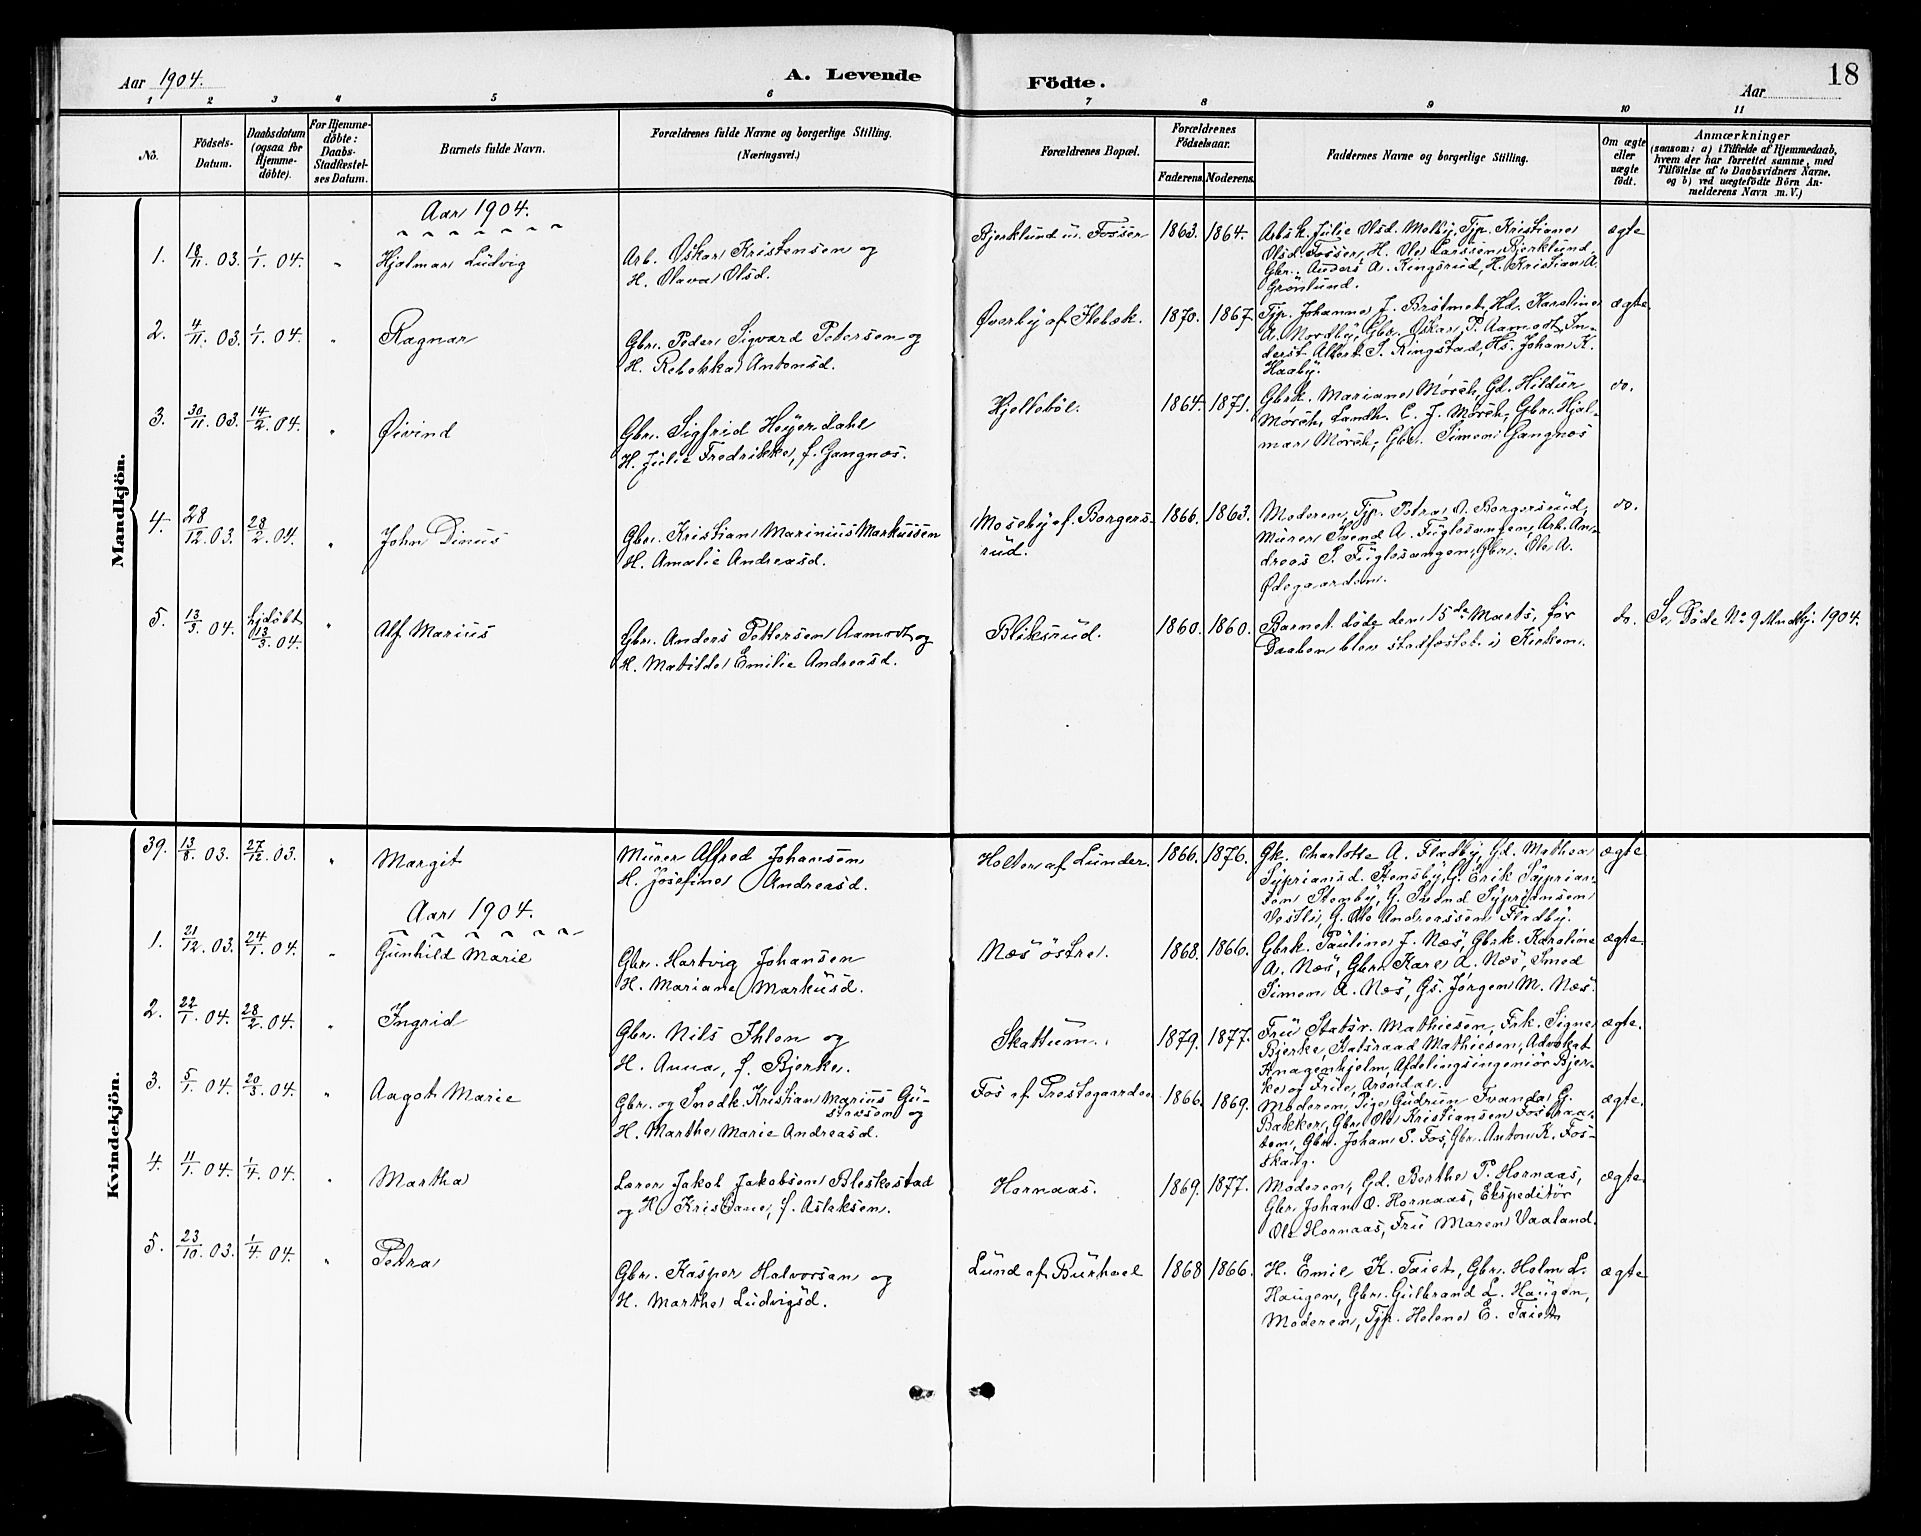 Aar 1904.
A. Levende Födte.
Aar
18
1 2 3 4 5 6 7 8 9 10 11
No.
Födsels-Datum.
Daabsdatum (ogsaa for Hjemmedöbte).
For Hjemmedöbte: Daabs-Stadfæstelses Datum.
Barnets fulde Navn.
Forældrenes fulde Navne og borgerlige Stilling.
(Næringsvei.)
Forældrenes Bopæl.
Forældrenes Födselsaar.
Faderens. Moderens.
Faddernes Navne og borgerlige Stilling.
Om ægte eller uægte født.
Anmærkninger
(saasom: a) i Tilfælde af Hjemmedaab, hvem der har forrettet samme, med Tilföielse af to Daabsvidners Navne. og b) ved uægtefödte Börn Anmelderens Navn m.V.)
Mandkjön.
Aar 1904.
1. 18/11 03. 1/1 04. " Hjalmar Ludvig
Arb. Oskar Kristensen og
H. Olava Olsd.
Bjerklund u. Fosser 1863. 1864.
Arbsk. Julie Olsd. Moby, Tjp. Kristiane
Olsd. Fosser, H. Ole Larssen Bjerklund,
Gbr. Anders A. Kingsrud, H. Kristian A.
Grönlund.
ægte
2. 4/11 03. 1/1 04. " Ragnar
Gbr. Peder Sigvard Petersen og
H. Rebekka Antonsd.
Øverby af Flebæk. 1870. 1867.
Tjp. Johanne J. Bråtmet, Hd. Karoline
A. Nordby, Gbr. Oskar P. Aamodt, In-
derst Albert S. Ringstad, Hs. Johan K.
Haaby.
ægte
3. 30/11 03. 14/2 04. " Øivind
Gbr. Sigfrid Heyerdahl
H. Julie Fredrikke, f. Gangnæs.
Hjeltebøl. 1864. 1871.
Gbrk. Mariane Mørch, Gd. Hildur
Mørch, Landh. C. J. Mørch, Gbr. Hjal-
mar Mørch, Gbr. Simen Gangnæs
do.
4. 28/12 03. 28/2 04. " John Dinus
Gbr. Kristian Marinius Markussen
H. Amalie Andreasd.
Moseby af Borgers-
rud. 1866. 1863.
Moderen, Tjp. Petra O. Borgersrud,
Murer Svend A. Fuglesangen, Arb. An-
dreas S. Fuglesangen, Gbr. Ole A.
Ødegaarden.
do.
5. 13/3 04. hjdøbt 13/3 04. " Alf Marius
Gbr. Anders Pettersen Aamodt og
H. Matilde Emilie Andreasd.
Bliksrud. 1860. 1860.
Barnet døde den 15de Marts, før
Daaben blev stadfæstet i Kirken.
do.
Se, Døde No 9 Mndkj. 1904.
Kvindekjön.
39. 13/8 03. 27/12 03. " Margit
Murer Alfred Johansen
H. Josefine Andreasd.
Holter af Lunder. 1866. 1876.
Gk. Charlotte A. Fladby, Gd. Mathea
Sypriansd. Stensby, G. Erik Syprian-
sen Stenby, G. Svend Syprjansen
Vestli, G. Ole Andreassen Fladby.
ægte
Aar 1904.
1. 21/12 03. 24/1 04. " Gunhild Marie
Gbr. Hartvig Johansen
H. Mariane Markusd.
Næs østre. 1868. 1866.
Gbrk. Pauline J. Næs, Gbrk. Karoline
A. Næs, Gbr. Karl A. Næs, Smed
Simen A. Næs, Gs. Jørgen M. Næs.
ægte.
2. 22/1 04. 28/2 04. " Ingrid
Gbr. Nils Ihlen og
H. Anna, f. Bjerke.
Skattum. 1879. 1877.
Fru Statsr. Mathiesen, Frk. Signe
Bjerke, Statsraad Mathiesen, Advokat
Knagenhjelm, Afdelingsingeniør Bjer-
ke og Frue, Arendal.
ægte.
3. 5/1 04. 20/3 04. " Aagot Marie
Gbr. og Snedk. Kristian Marius Gu-
stavsen og
H. Marthe Marie Andreasd.
Fos af Prestegaarden 1866. 1869.
Moderen, Pige Gudrun Tvanda G.
Bakker, Gbr. Ole Kristiansen Fosbraa-
ten, Gbr. Johan S. Fos, Gbr. Anton K. Fos-
skaug.
ægte.
4. 11/1 04. 1/4 04. " Martha
Lærer Jakob Jakobsen Bleskestad
og H. Kristiane, f. Aslaksen.
Hornaas. 1869. 1877.
Moderen, Gd. Berthe P. Hornaas,
Gbr. Johan O. Hornaas, Ekspeditør
Ole Hornaas, Fru Maren Vaaland.
ægte.
5. 23/10 03. 1/4 04. " Petra
Gbr. Kasper Halvorsen og
H. Marthe Ludvigsd.
Lund af Burhoel 1868 1866.
H. Emil K. Taiet, Gbr. Holm L.
Haugen, Gbr. Gulbrand L. Haugen,
Moderen, Tjp. Helene E. Taiet
ægte